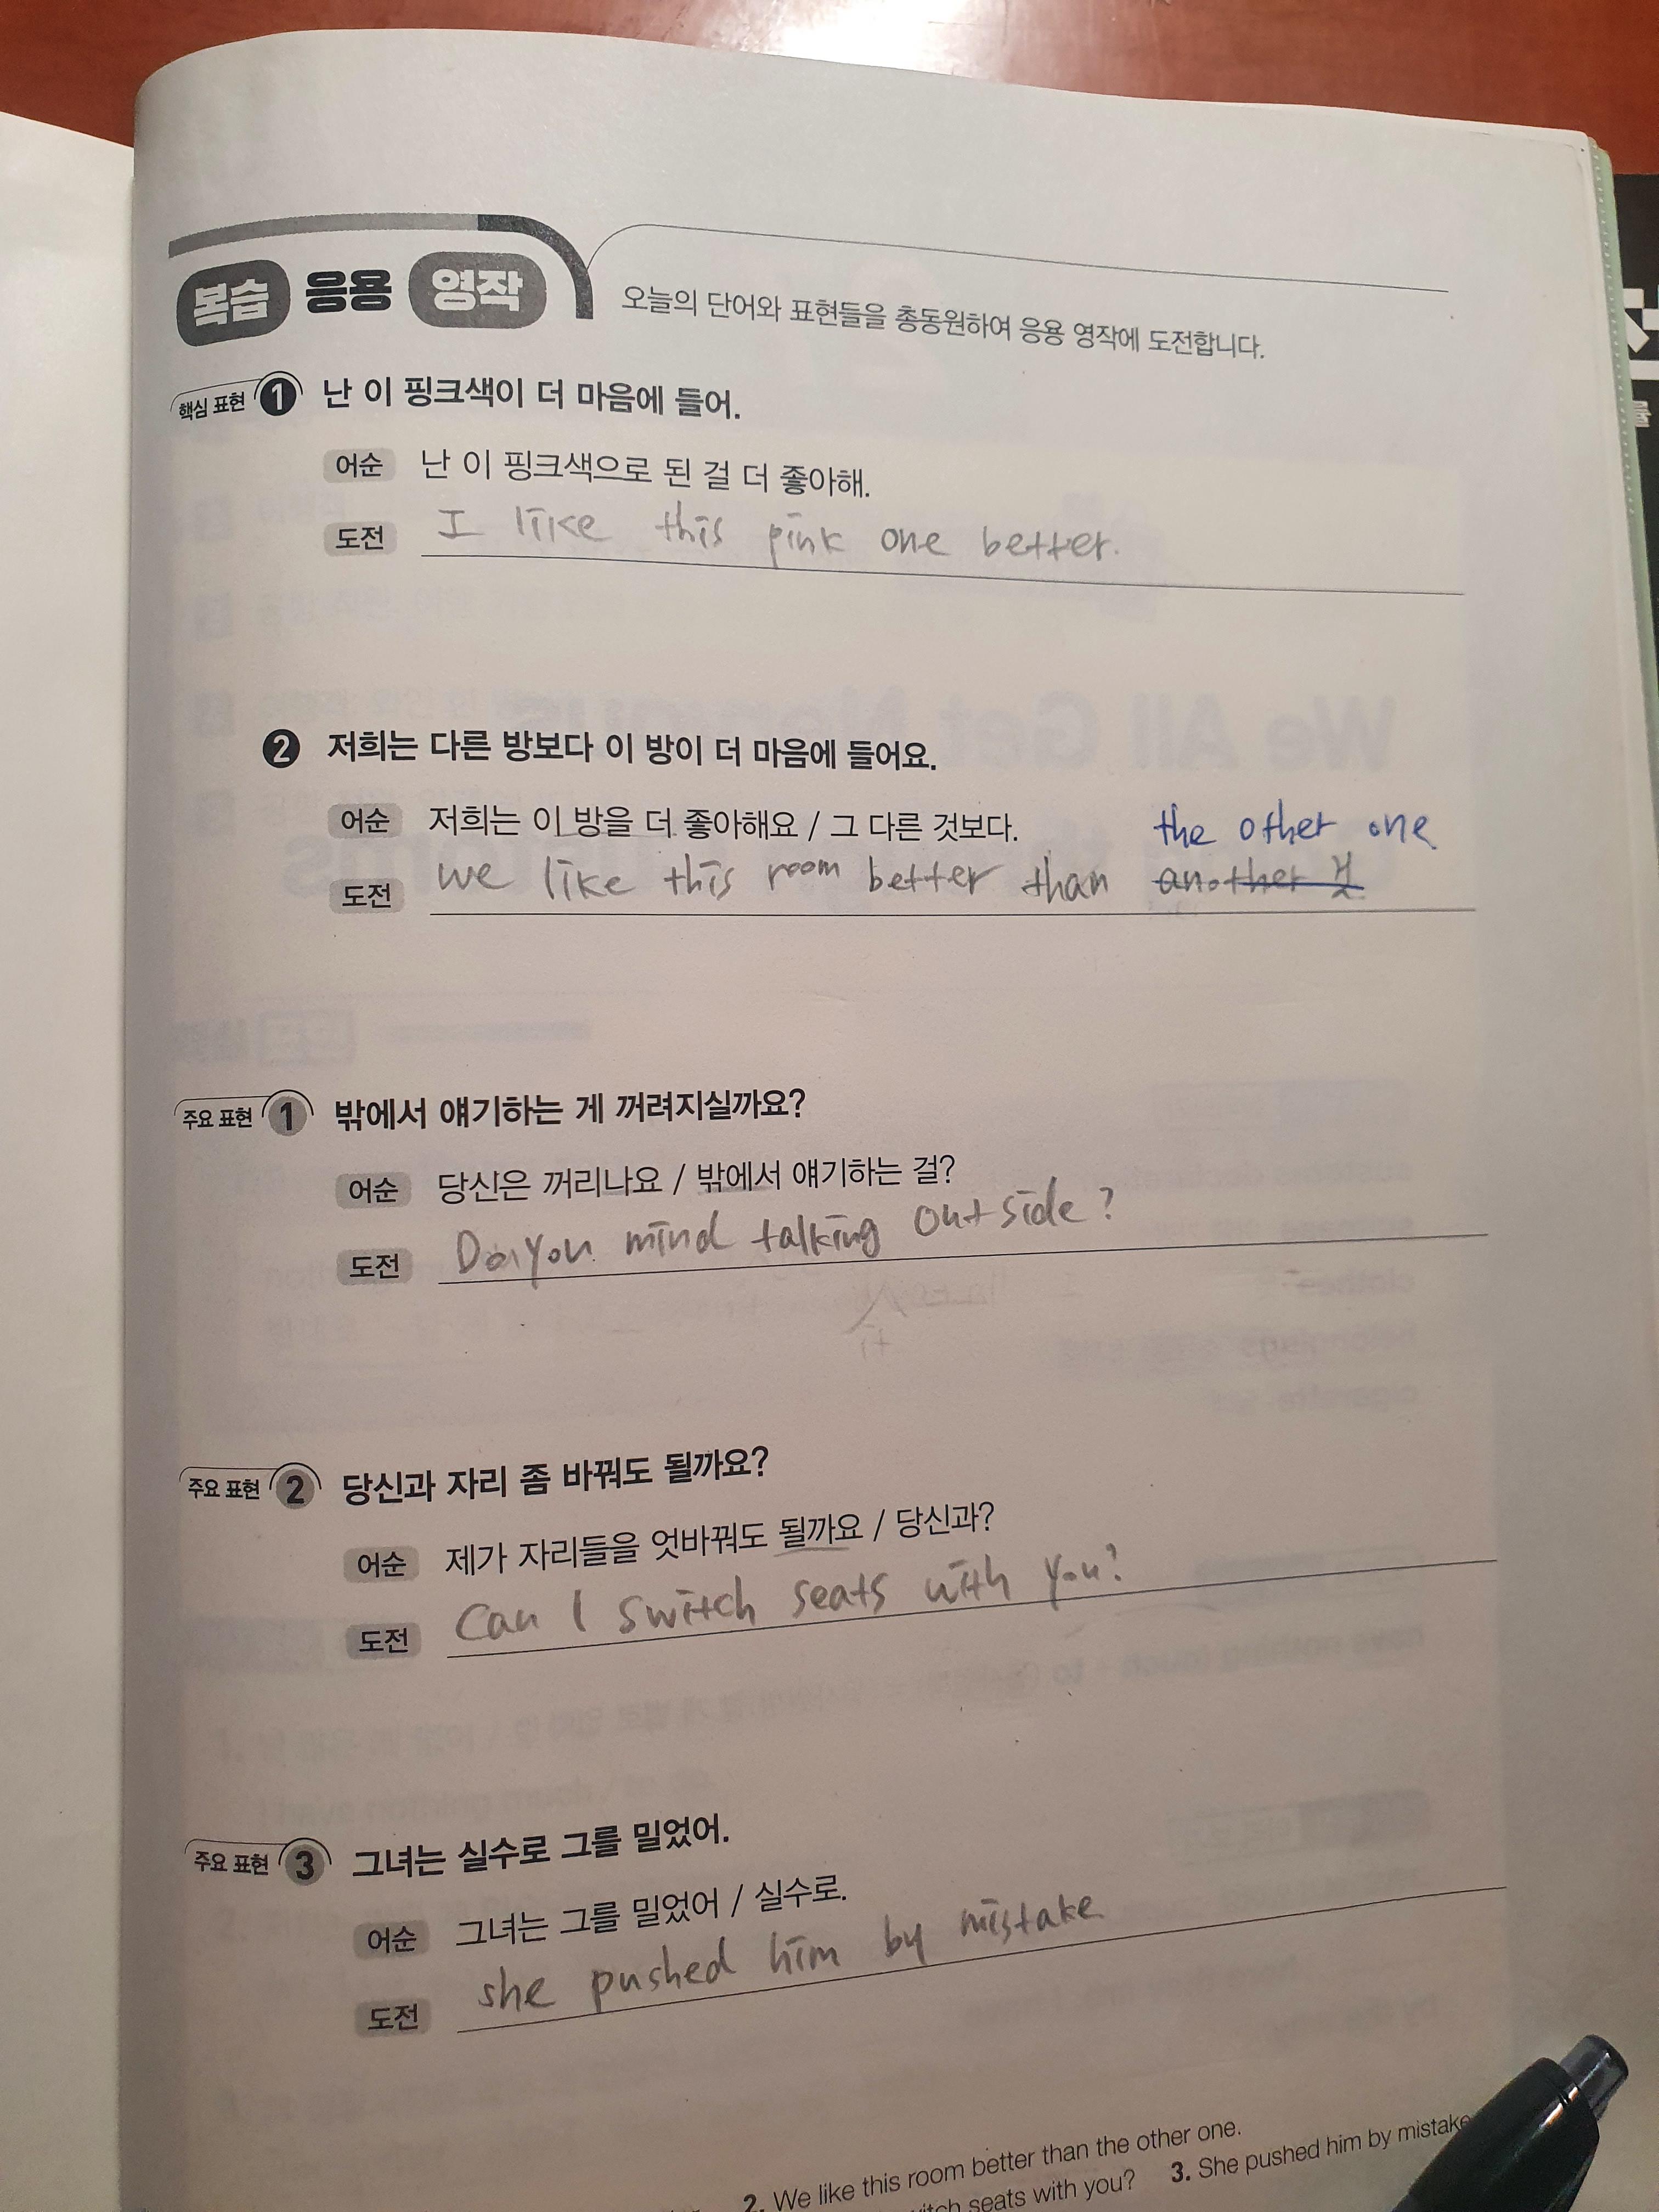 복습 응용 영작
오늘의 단어와 표현들을 총동원하여 응용 영작에 도전합니다.
핵심 표현 1 난 이 핑크색이 더 마음에 들어.
어순 난 이 핑크색으로 된 걸 더 좋아해.
도전 I like this pink one better.
2 저희는 다른 방보다 이 방이 더 마음에 들어요.
어순 저희는 이 방을 더 좋아해요 / 그 다른 것보다.
the other one
도전 we like this room better than another
주요 표현 1 밖에서 얘기하는 게 꺼려지실까요?
어순 당신은 꺼리나요 / 밖에서 얘기하는 걸?
도전 Do you mind talking outside?
주요 표현 2 당신과 자리 좀 바꿔도 될까요?
어순 제가 자리들을 엇바꿔도 될까요 / 당신과?
도전 Can I switch seats with you?
주요 표현 3 그녀는 실수로 그를 밀었어.
어순 그녀는 그를 밀었어 / 실수로.
도전 she pushed him by mistake
2. We like this room better than the other one.
seats with you? 3. She pushed him by mistake